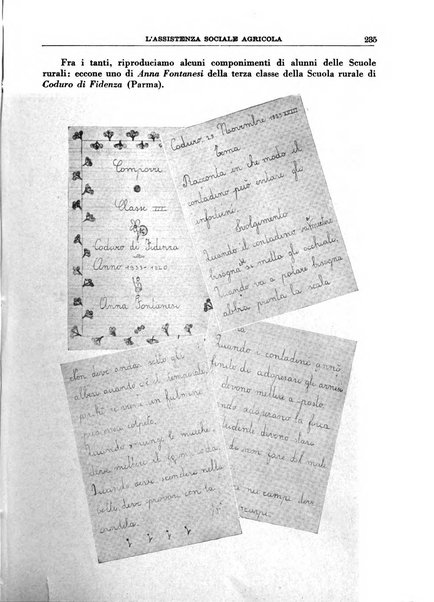 L'ASSISTENZA SOCIALE AGRICOLA 235
Fra i tanti, riproduciamo alcuni componimenti di alunni delle Scuole
rurali: eccone uno di Anna Fontanesi della terza classe della Scuola rurale di
Coduro di Fidenza (Parma).
Comporre
Classe III
Coduro di Fidenza
Anno 1933-1920
Anna Fontanesi
Coduro 29 Novembre 1933
Tema
Racconta in che modo il
contadino può evitare gli
infortuni.
Svolgimento
Quando il contadino
bisogna si metta gli occhiali,
Quando va a potare bisogna
abbia pronta la scala
Non deve andar sotto gli
alberi quando c'è il temporale,
perché se viene un fulmine
può essere colpito.
Quando munge le mucche
deve mettere il
Quando deve scendere nella
botte, deve provare con la
candela.
Quando i contadini
finito di adoperare gli arnesi
devono mettere a posto.
Quando adoperano la falce
devono stare
non fare del male
nei campi deve